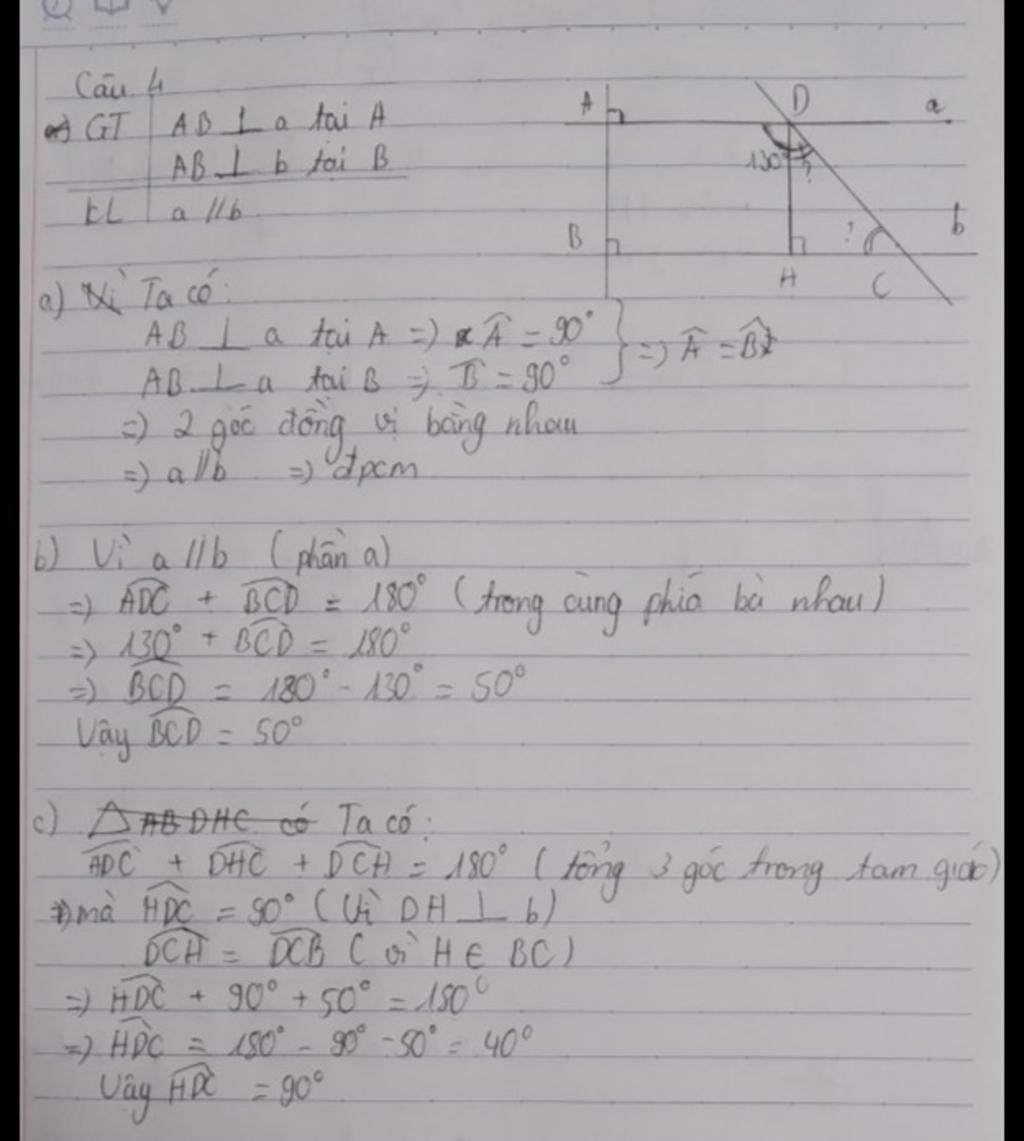 Câu 4
GT AB ⊥ a tại A
AB ⊥ b tại B
KL a // b
A D a
130° ?
B H ? C b
a) Vì Ta có:
AB ⊥ a tại A => Â = 90°
AB ⊥ a tại B => B̂ = 90° } => Â = B̂
=> 2 góc đồng vị bằng nhau
=> a // b => đpcm
b) Vì a // b (phần a)
=> ADC + BCD = 180° (trong cùng phía bù nhau)
=> 130° + BCD = 180°
=> BCD = 180° - 130° = 50°
Vậy BCD = 50°
c) △ AB DHC có Ta có:
ADC + DHC + DCH = 180° (tổng 3 góc trong tam giác)
mà HDC = 90° (Vì DH ⊥ b)
DCH = DCB (vì H ∈ BC)
=> HDC + 90° + 50° = 180°
=> HDC = 180° - 90° - 50° = 40°
Vậy HDC = 90°